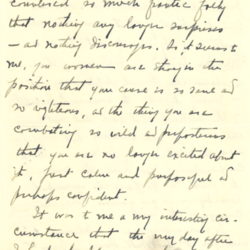 considered so much poetic folly
that nothing any longer surprises
— and nothing discourages. So it seems to
me, you women are strong in the
position that your cause is so sane and
so righteous, and the thing you are
combating so wild and preposterous
that you are no longer excited about
it, just calm and purposeful and
perhaps confident.
It was to me a very interesting cir-
cumstance that the very day after